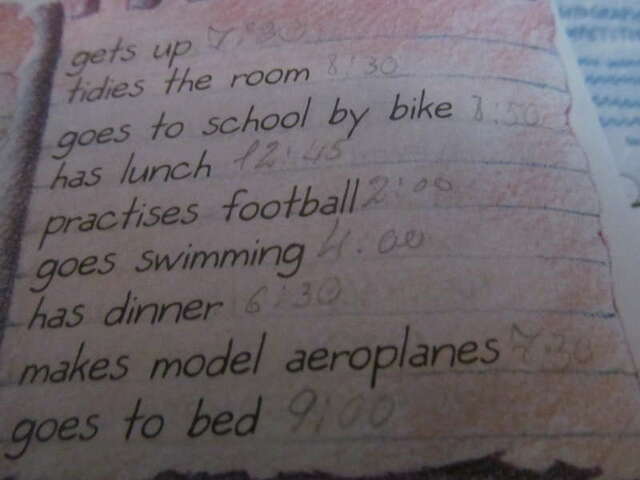 gets up 7:30
tidies the room 8:30
goes to school by bike 8:50
has lunch 12:45
practises football 2:00
goes swimming 4:00
has dinner 6:30
makes model aeroplanes 7:30
goes to bed 9:00